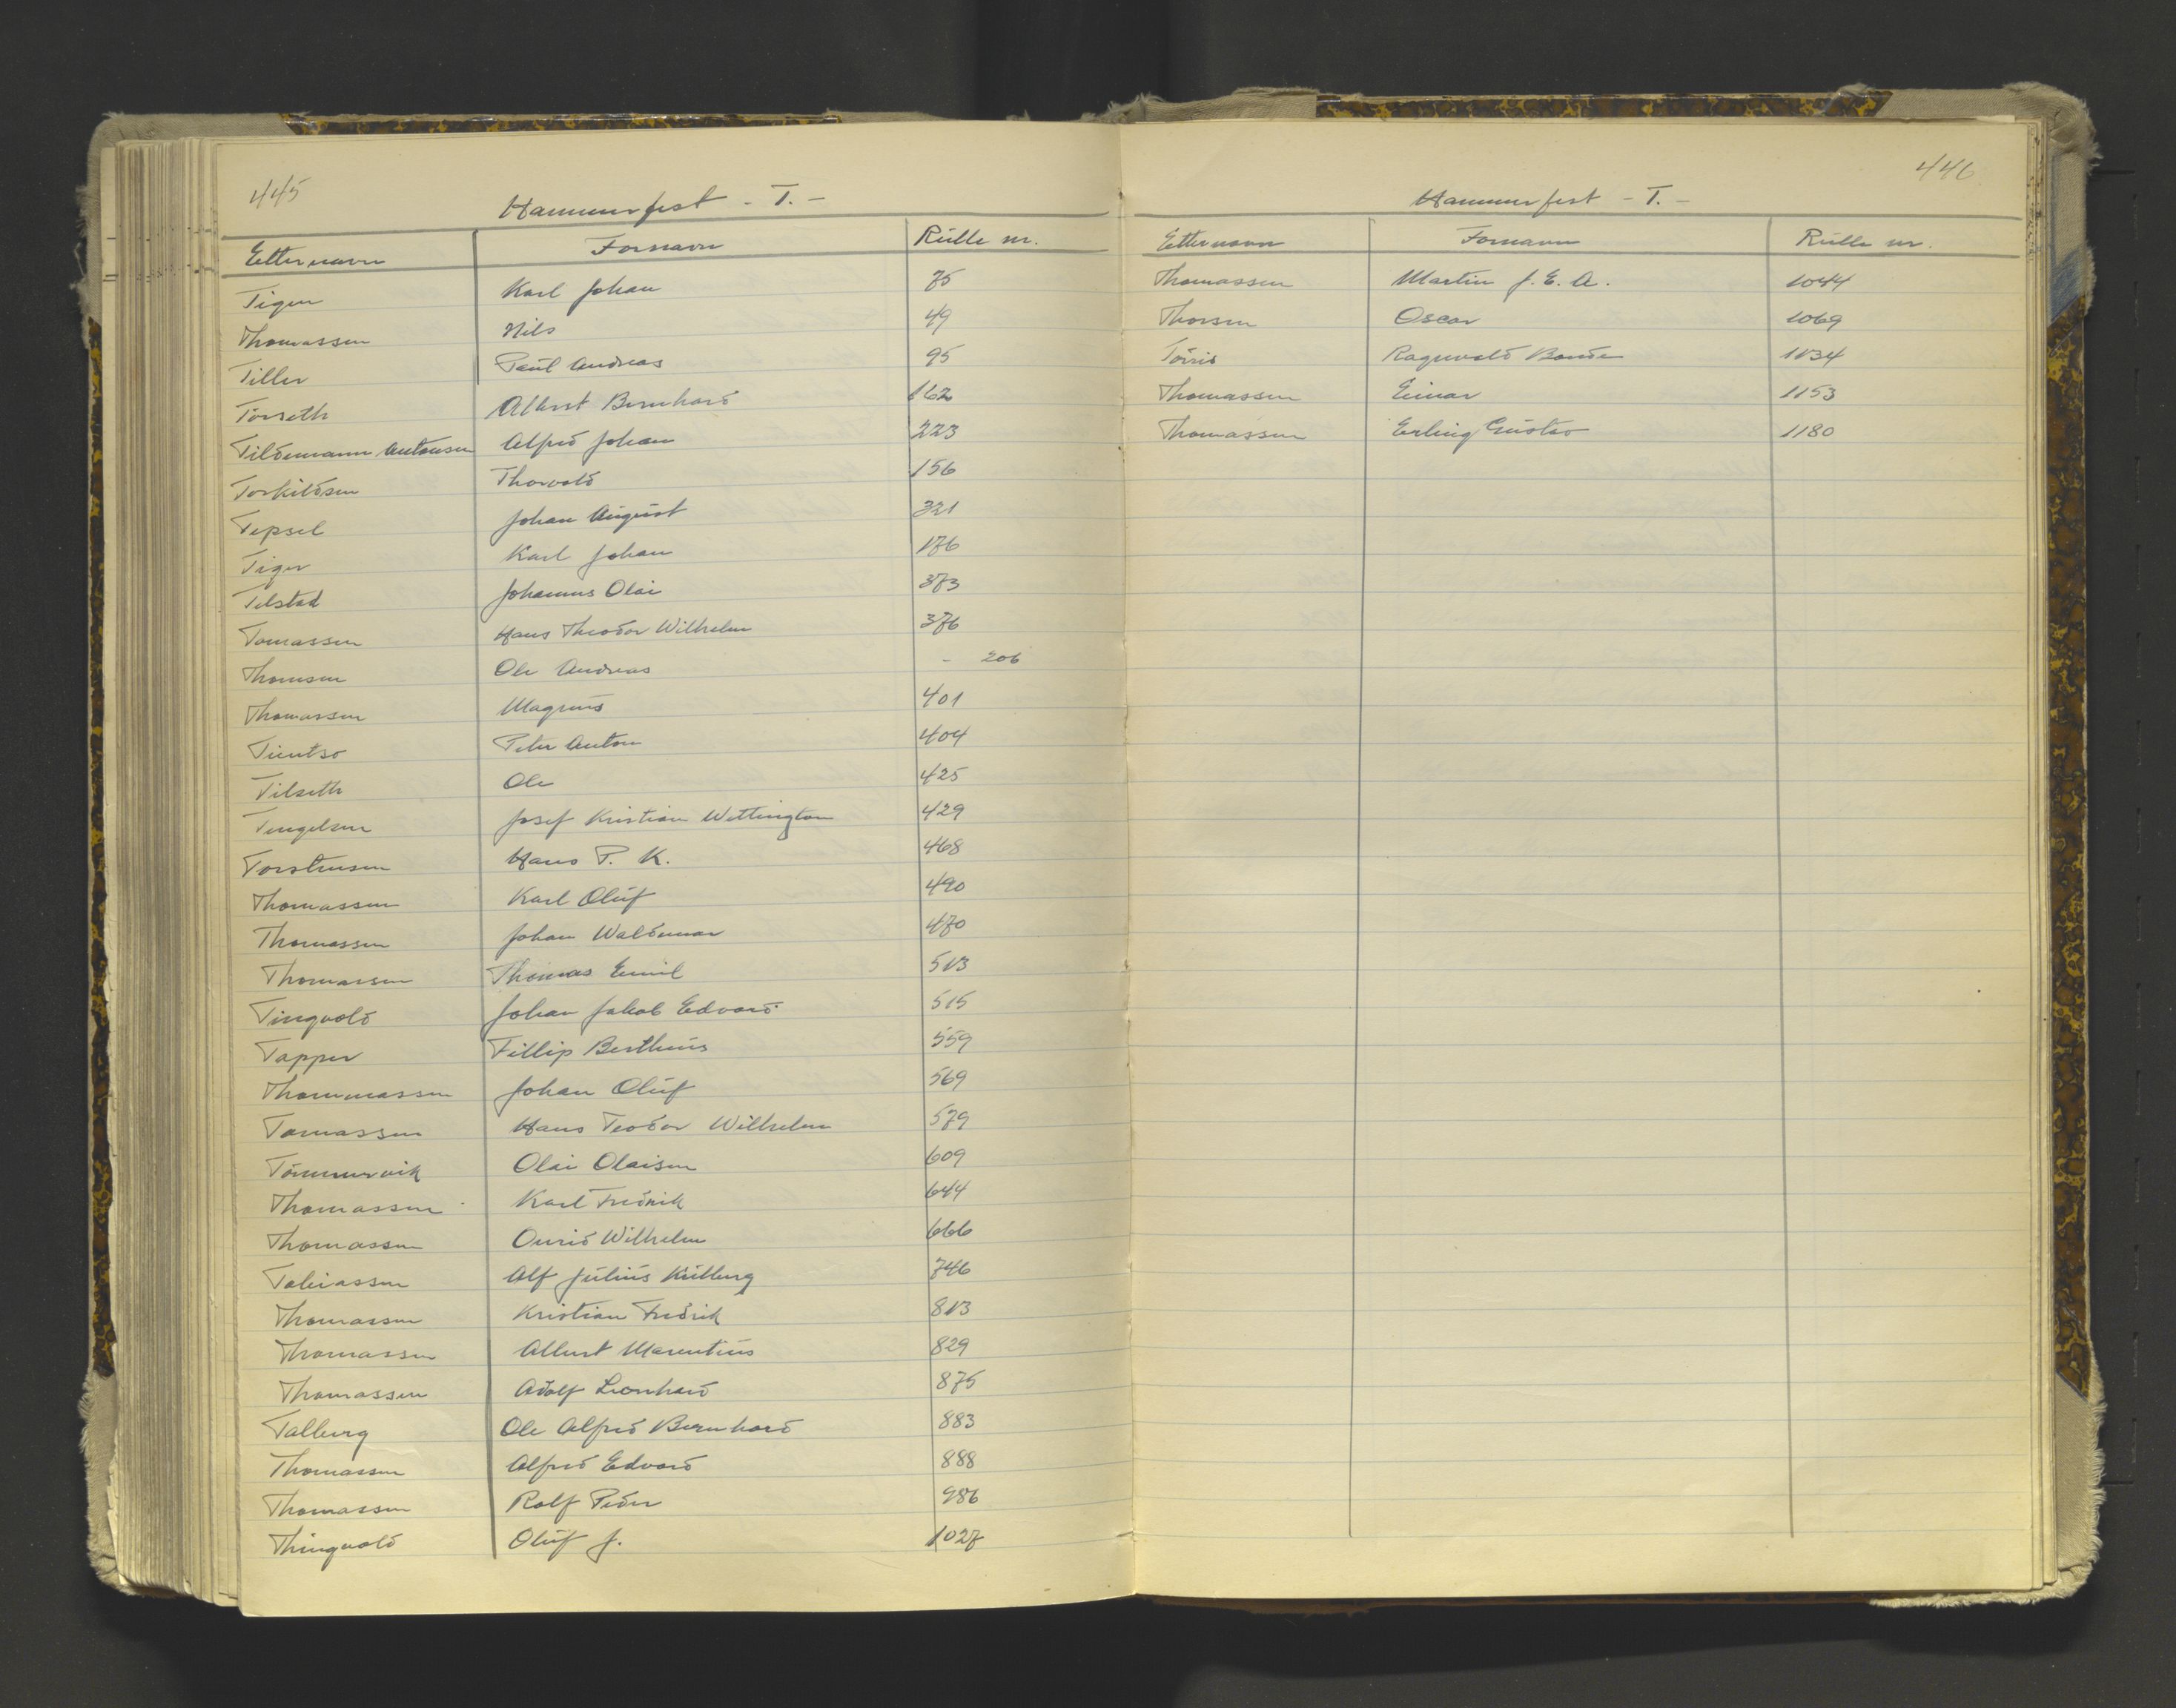 445
Hammerfest - T. -
Etternavn Fornavn Rulle nr.
Tiger Karl Johan 75
Thomassen Nils 49
Tiller Paul Andreas 95
Torseth Albert Bernhard 162
Tildemann Antonsen Alfred Johan 223
Torkildsen Thorvald 156
Tepsel Johan August 321
Tiger Karl Johan 176
Tilstad Johannes Olai 373
Tomassen Hans Theodor Wilhelm 376
Thomsen Ole Andreas - 206
Thomassen Magnus 401
Peter Anton 404
Tilseth Ole 425
Tengelsen Josef Kristian Wettington 429
Torstensen Hans P. K. 468
Thomassen Karl Oluf 490
Thomassen Johan Waldemar 470
Thomassen Thomas Emil 513
Tingvold Johan Jakob Edvard 515
Tapper Fillip Bertheus 559
Thommassen Johan Oluf 569
Tomassen Hans Teodor Wilhelm 579
Tömmervik Olai Olaisen 609
Thomassen Karl Fredrik 644
Thomassen Wilhelm 666
Tobiassen Alf Julius Külberg 746
Thomassen Kristian Fredrik 813
Thomassen Albert Marentius 829
Thomassen Adolf Leonhard 875
Talberg Ole Alfred Bernhard 883
Thomassen Alfred Edvard 888
Thomassen Rolf Peder 986
Thingvold Oluf J. 1027
446
Hammerfest - T. -
Etternavn Fornavn Rulle nr.
Thomassen Martin J. E. A. 1044
Thorsen Oscar 1069
Ragnvald 1134
Thomassen Einar 1153
Thomassen Erling Gustav 1180